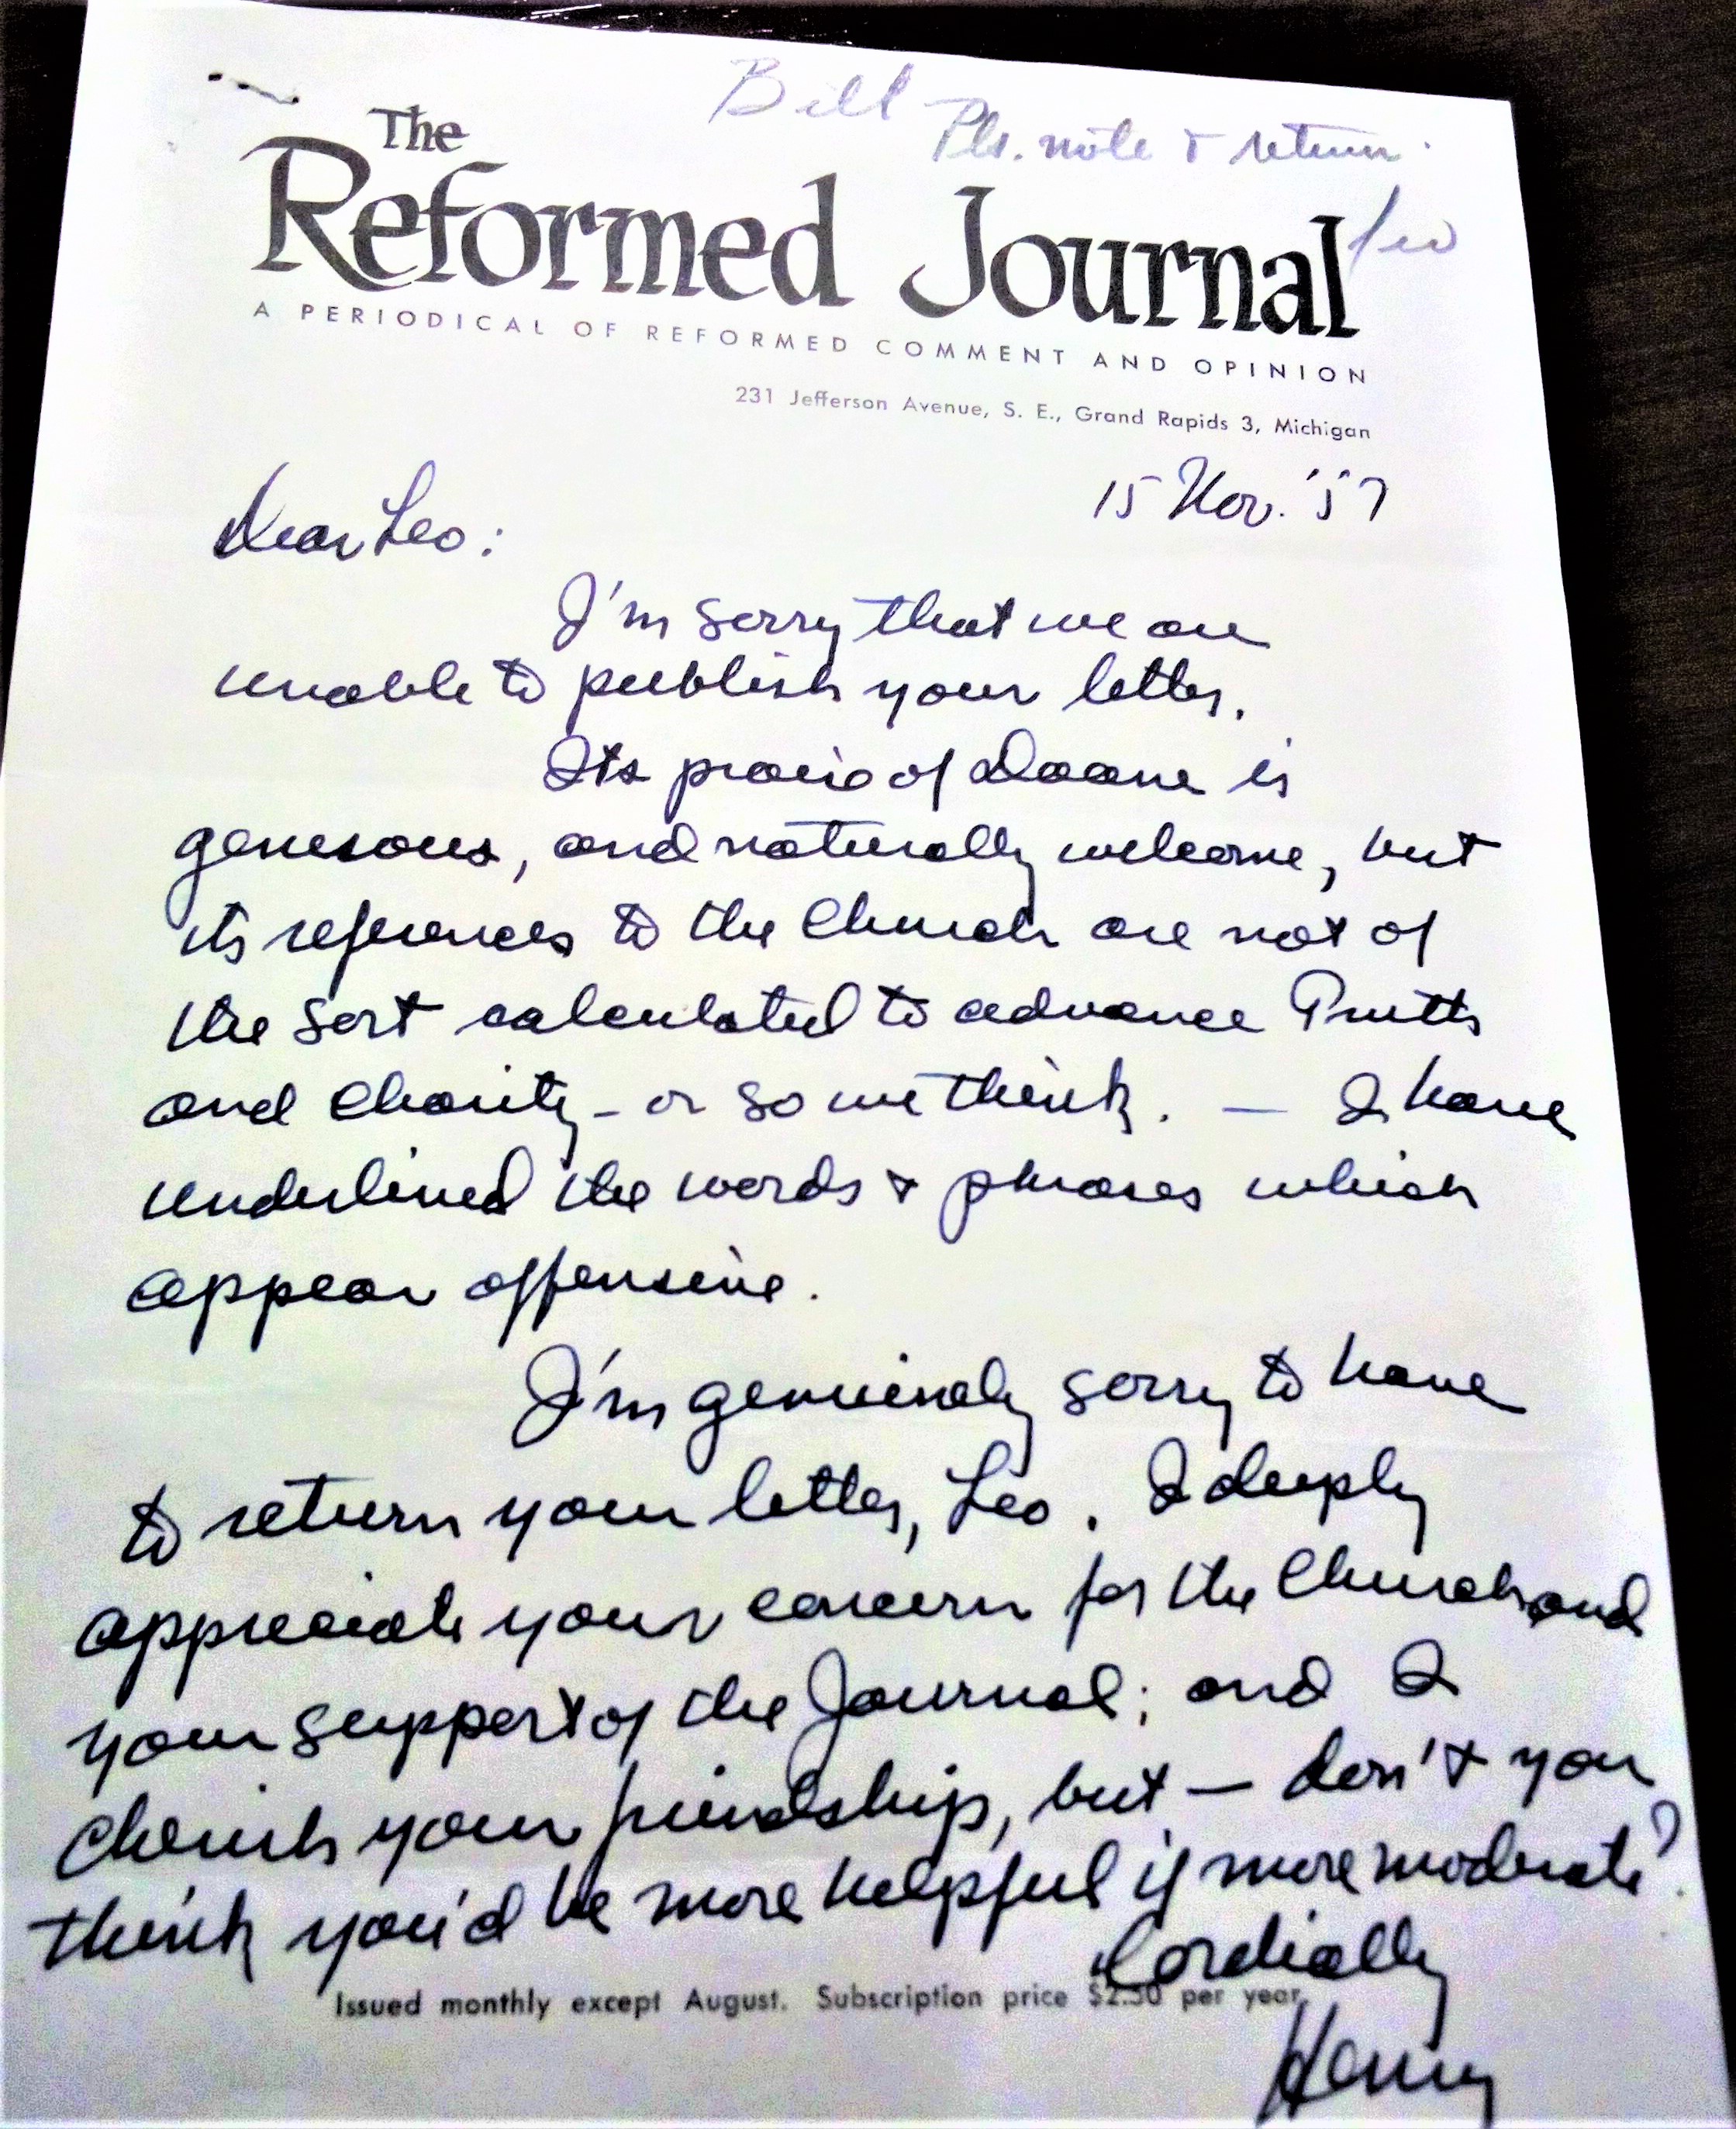 Bill
Pls. note & return.
Leo
The
Reformed Journal
A PERIODICAL OF REFORMED COMMENT AND OPINION
231 Jefferson Avenue, S. E., Grand Rapids 3, Michigan
15 Nov. '57
Dear Leo:
I'm sorry that we are
unable to publish your letter.
Its praise of Doane is
generous, and naturally welcome, but
its references to the Church are not of
the sort calculated to advance Truth
and Charity - or so we think. — I have
underlined the words & phrases which
appear offensive.
I'm genuinely sorry to have
to return your letter, Leo. I deeply
appreciate your concern for the Church and
your support of the Journal; and I
cherish your friendship, but — don't you
think you'd be more helpful if more moderate?
Cordially
Issued monthly except August. Subscription price $2.50 per year.
Henry